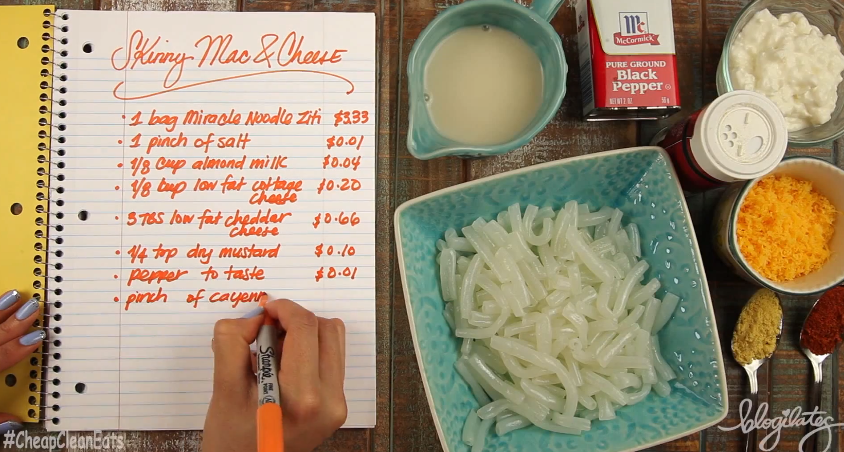 Skinny Mac & Cheese
• 1 bag Miracle Noodle Ziti $3.33
• 1 pinch of salt $0.01
• 1/8 cup almond milk $0.04
• 1/8 cup low fat cottage cheese $0.20
• 3 TBS low fat cheddar cheese $0.66
• 1/4 tsp dry mustard $0.10
• pepper to taste $0.01
• pinch of cayenn
Sharpie
#CheapCleanEats
McCormick
McCormick
PURE GROUND
Black
Pepper
NET WT 2 OZ. 56 g
blogilates